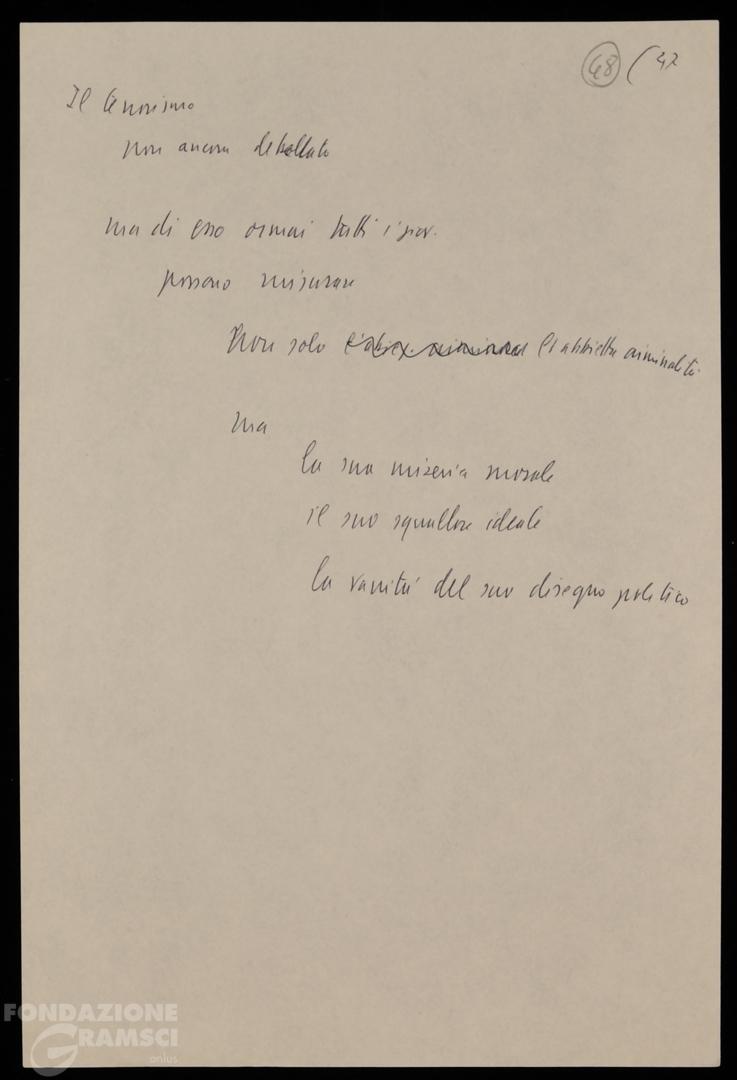 48 (47
Il terrorismo
non ancora debellato
ma di esso ormai tutti i giov.
possono misurare
Non solo l'abbietta criminalità
ma
la sua miseria morale
il suo squallore ideale
la vanità del suo disegno politico
FONDAZIONE
GRAMSCI
onlus